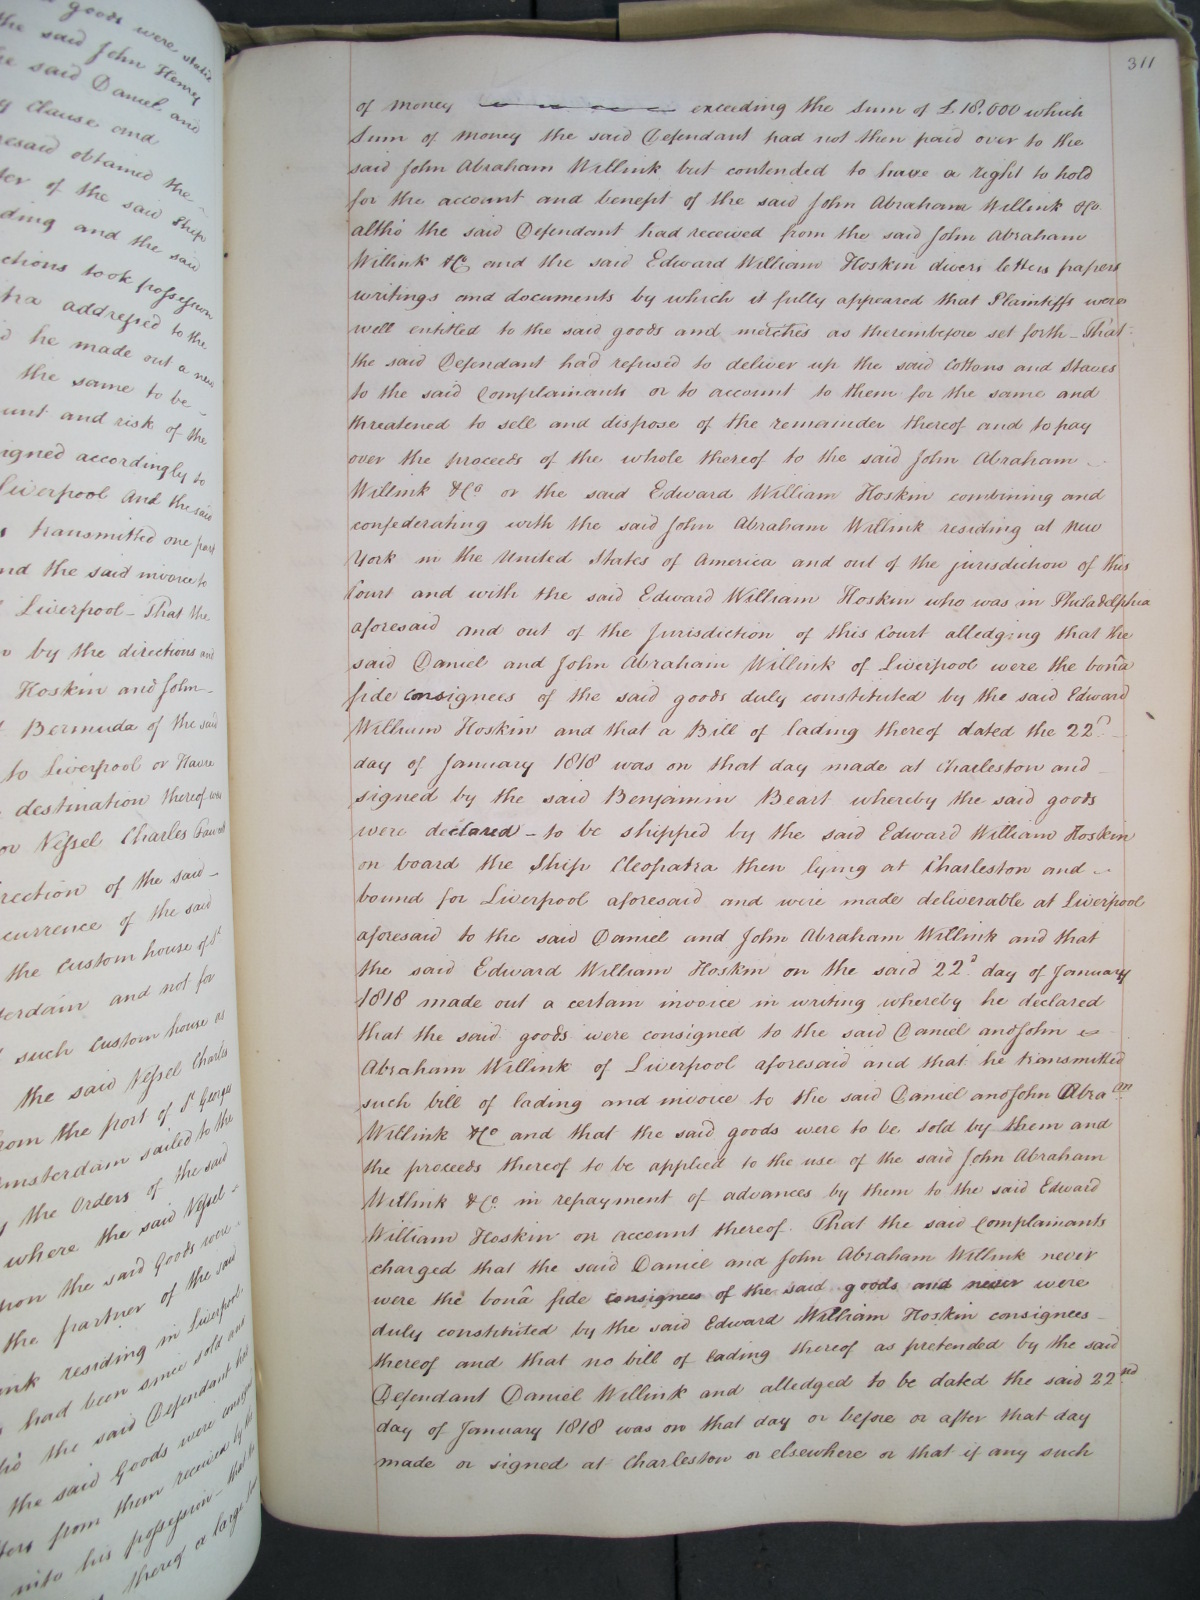 goods were
the said John Henry
he said Daniel and
clause and
resaid obtained the
ter of the said Ship
ding and the said
ctions took possession
tra addressed to the
he made out a new
the same to be
unt and risk of the
igned accordingly to
Liverpool and the said
transmitted one part
and the said invoice to
Liverpool - That the
by the directions and
Hoskin and John
Bermuda of the said
to Liverpool or Havre
destination thereof was
or Vessel Charles
rection of the said
currence of the said
the custom house of St
terdam and not for
such custom house as
the said Vessel Charles
from the port of St Georges
msterdam sailed to the
the Orders of the said
where the said Vessel
the said Goods were
the partner of the said
ink residing in Liverpool
had been since sold and
the said Defendant had
the said Goods were
from them received by
into his possession - that
thereof a large
311
of money exceeding the Sum of £18.000 which
Sum of money the said Defendant had not then paid over to the
said John Abraham Willink but contended to have a right to hold
for the account and benefit of the said John Abraham Willink &Co.
altho the said Defendant had received from the said John Abraham
Willink &Co and the said Edward William Hoskin divers letters papers
writings and documents by which it fully appeared that Plaintiffs were
well entitled to the said goods and merches as thereinbefore set forth - That
the said Defendant had refused to deliver up the said Cottons and Staves
to the said Complainants or to account to them for the same and
threatened to sell and dispose of the remainder thereof and to pay
over the proceeds of the whole thereof to the said John Abraham
Willink &Co or the said Edward William Hoskin combining and
confederating with the said John Abraham Willink residing at New
York in the United States of America and out of the jurisdiction of this
Court and with the said Edward William Hoskin who was in Philadelphia
aforesaid and out of the Jurisdiction of this Court alledging that the
said Daniel and John Abraham Willink of Liverpool were the bonâ
fide consignees of the said goods duly constituted by the said Edward
William Hoskin and that a Bill of lading thereof dated the 22d
day of January 1818 was on that day made at Charleston and
signed by the said Benjamin Beart whereby the said goods
were declared - to be shipped by the said Edward William Hoskin
on board the Ship Cleopatra then lying at Charleston and
bound for Liverpool aforesaid and were made deliverable at Liverpool
aforesaid to the said Daniel and John Abraham Willink and that
the said Edward William Hoskin on the said 22d day of January
1818 made out a certain invoice in writing whereby he declared
that the said goods were consigned to the said Daniel and John
Abraham Willink of Liverpool aforesaid and that he transmitted
such bill of lading and invoice to the said Daniel and John Abram
Willink &Co and that the said goods were to be sold by them and
the proceeds thereof to be applied to the use of the said John Abraham
Willink &Co. in repayment of advances by them to the said Edward
William Hoskin on account thereof. That the said Complainants
charged that the said Daniel and John Abraham Willink never
were the bonâ fide consignees of the said goods and never were
duly constituted by the said Edward William Hoskin consignees
thereof and that no bill of lading thereof as pretended by the said
Defendant Daniel Willink and alledged to be dated the said 22nd
day of January 1818 was on that day or before or after that day
made or signed at Charleston or elsewhere or that if any such